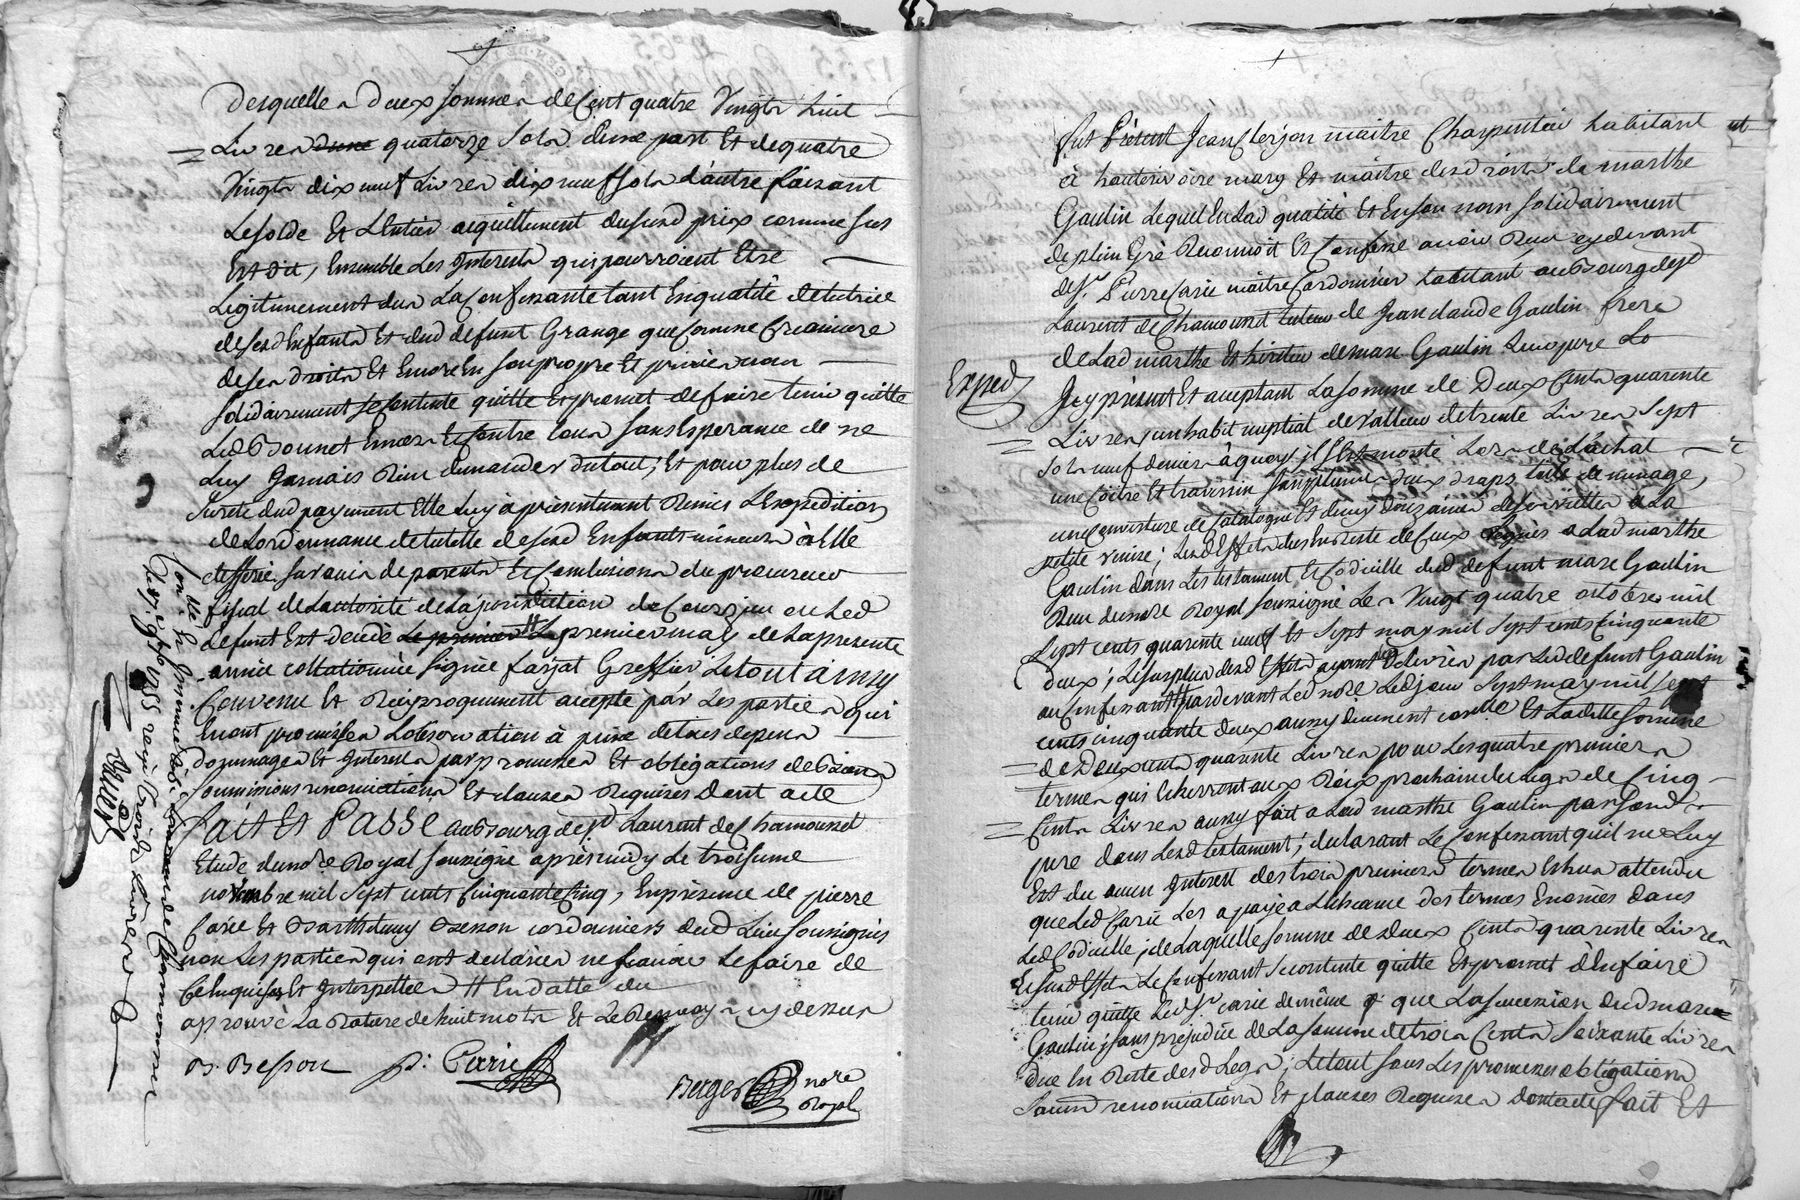 desquelles deux sommes de Cent quatre Vingts huit
Livres dune quatorze sols d'une part Et de quatre
Vingts dix neuf Livres dix neuf sols d'autre faisant
Le solde Et L'Entier acquittement dususd prix comme sus
Est dit, Ensemble Les Interests qui pourroient Etre
Legitimement dus La Confessante tant En qualité de tutrice
desesd Enfants Et dud defunt Grange que Comme Creanciere
de ses droits Et Encore En son propre Et privé nom
solidairement se Contente quitte Et promet de faire tenir quitte
Led Bounet Envers Et Contre tous sans Esperance de ne
Luy Jamais Rien demander du tout; Et pour plus de
surete dud payement Elle Luy à presentement Remis L'Expedition
de L'ordonnance de tutelle desesd Enfants mineurs à Elle
defferée sur avis de parents Et Conclusions du procureur
fiscal de L'autorité de La jurisdiction de Courzieu ou Led
defunt Est decedé Le premier Le premier may de La presente
année collationnée signée farjat Greffier Le tout ainsy
Convenu Et Reciproquement accepté par Les parties qui
En ont promis L'observation à peine de tous depens
dommages Et Interests par promesses Et obligations de biens
soumissions renonciations Et clauses Requises Dont acte
Fait Et Passé au bourg de St Laurent de Chamousset
Etude du nore Royal soussigné après midy Le troisieme
novembre mil sept cents Cinquante Cinq, En presence de pierre
Carie Et Barthelemy Besson cordonniers dud Lieu soussignés
non Les parties qui ont declarées ne sçavoir Le faire de
Ce Enquises Et Interpellées # En datte du
aprouvé La Rature de huit mots Et Le Renvoy cy dessus
B. Besson P. Carrie
Berger nore
Royal
Conlle à St Laurent de Chamousset
1755 reçu
Fut Present Jean Clerjon maitre Charpentier habitant
à hauterivoire mary Et maitre desd droits de marthe
Gaulin Lequel En lad qualité Et En son nom solidairement
de plein Gré Reconnoit Et Confesse avoir Reçu cy devant
de Sr Pierre Carie maitre Cordonnier habitant au Bourg de St
Laurent de Chamousset tuteur de Jean claude Gaulin frere
de Lad marthe Et heritier de marc Gaulin Leur pere Lo
Expedz
Icy present Et acceptant La somme de Deux Cents quarente
Livres, un habit nuptial de valleur de trente Livres sept
sols neuf deniers à quoy il s'Est monté Lors de L'achat
une Coitre Et traversin sans plume deux draps toile de menage,
une Couverture de Catalogne Et deux douzaines de serviettes à La
petite venise; Lesd Effets dus de Reste de Ceux Legués a Lad marthe
Gaulin dans Les testament Et Codicille dud defunt marc Gaulin
Reçu du nore Royal soussigné Les Vingt quatre octobre mil
sept cents quarante neuf Et sept may mil sept cents Cinquante
deux; Le surplus desd Effets ayant été delivrés par Led defunt Gaulin
au Confessant pardevant Led nore Led jour sept may mil sept
cents cinquante deux aussy duement conllé Et Ladite somme
de Deux cents quarante Livres pour Les quatre premiers
termes qui Echerront aux Roix prochain du Legs de Cinq
Cents Livres aussy fait a Lad marthe Gaulin par sond
pere dans Lesd testament; declarant Le Confessant qu'il ne Luy
Est du aucun Interest des trois premiers termes Echus attendu
que Led Carie Les a payés a L'Echeance des termes Enoncés dans
Led Codicille; de Laquelle somme de Deux Cents quarente Livres
Et susd Effets Le Confessant se contente quitte Et promet d'En faire
tenir quitte Led Sr Carie de même que La succession dud marc
Gaulin; sans prejudice de La somme de trois Cents soixante Livres
due En Reste desd Legs; Le tout sous Les promesses obligations
soumd renonciations Et clauses Requises Dont acte fait Et